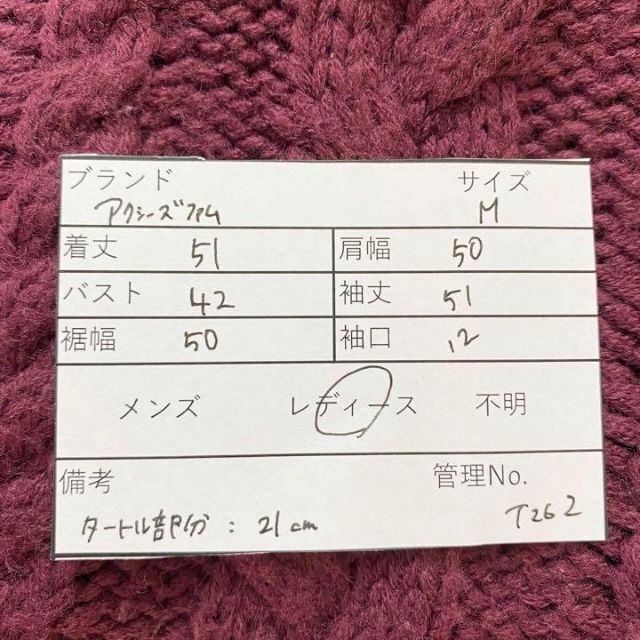 ブランド サイズ
アクシーズファム M
着丈 51 肩幅 50
バスト 42 袖丈 51
裾幅 50 袖口 12
メンズ レディース 不明
備考 管理No.
タートル部分：21cm T262